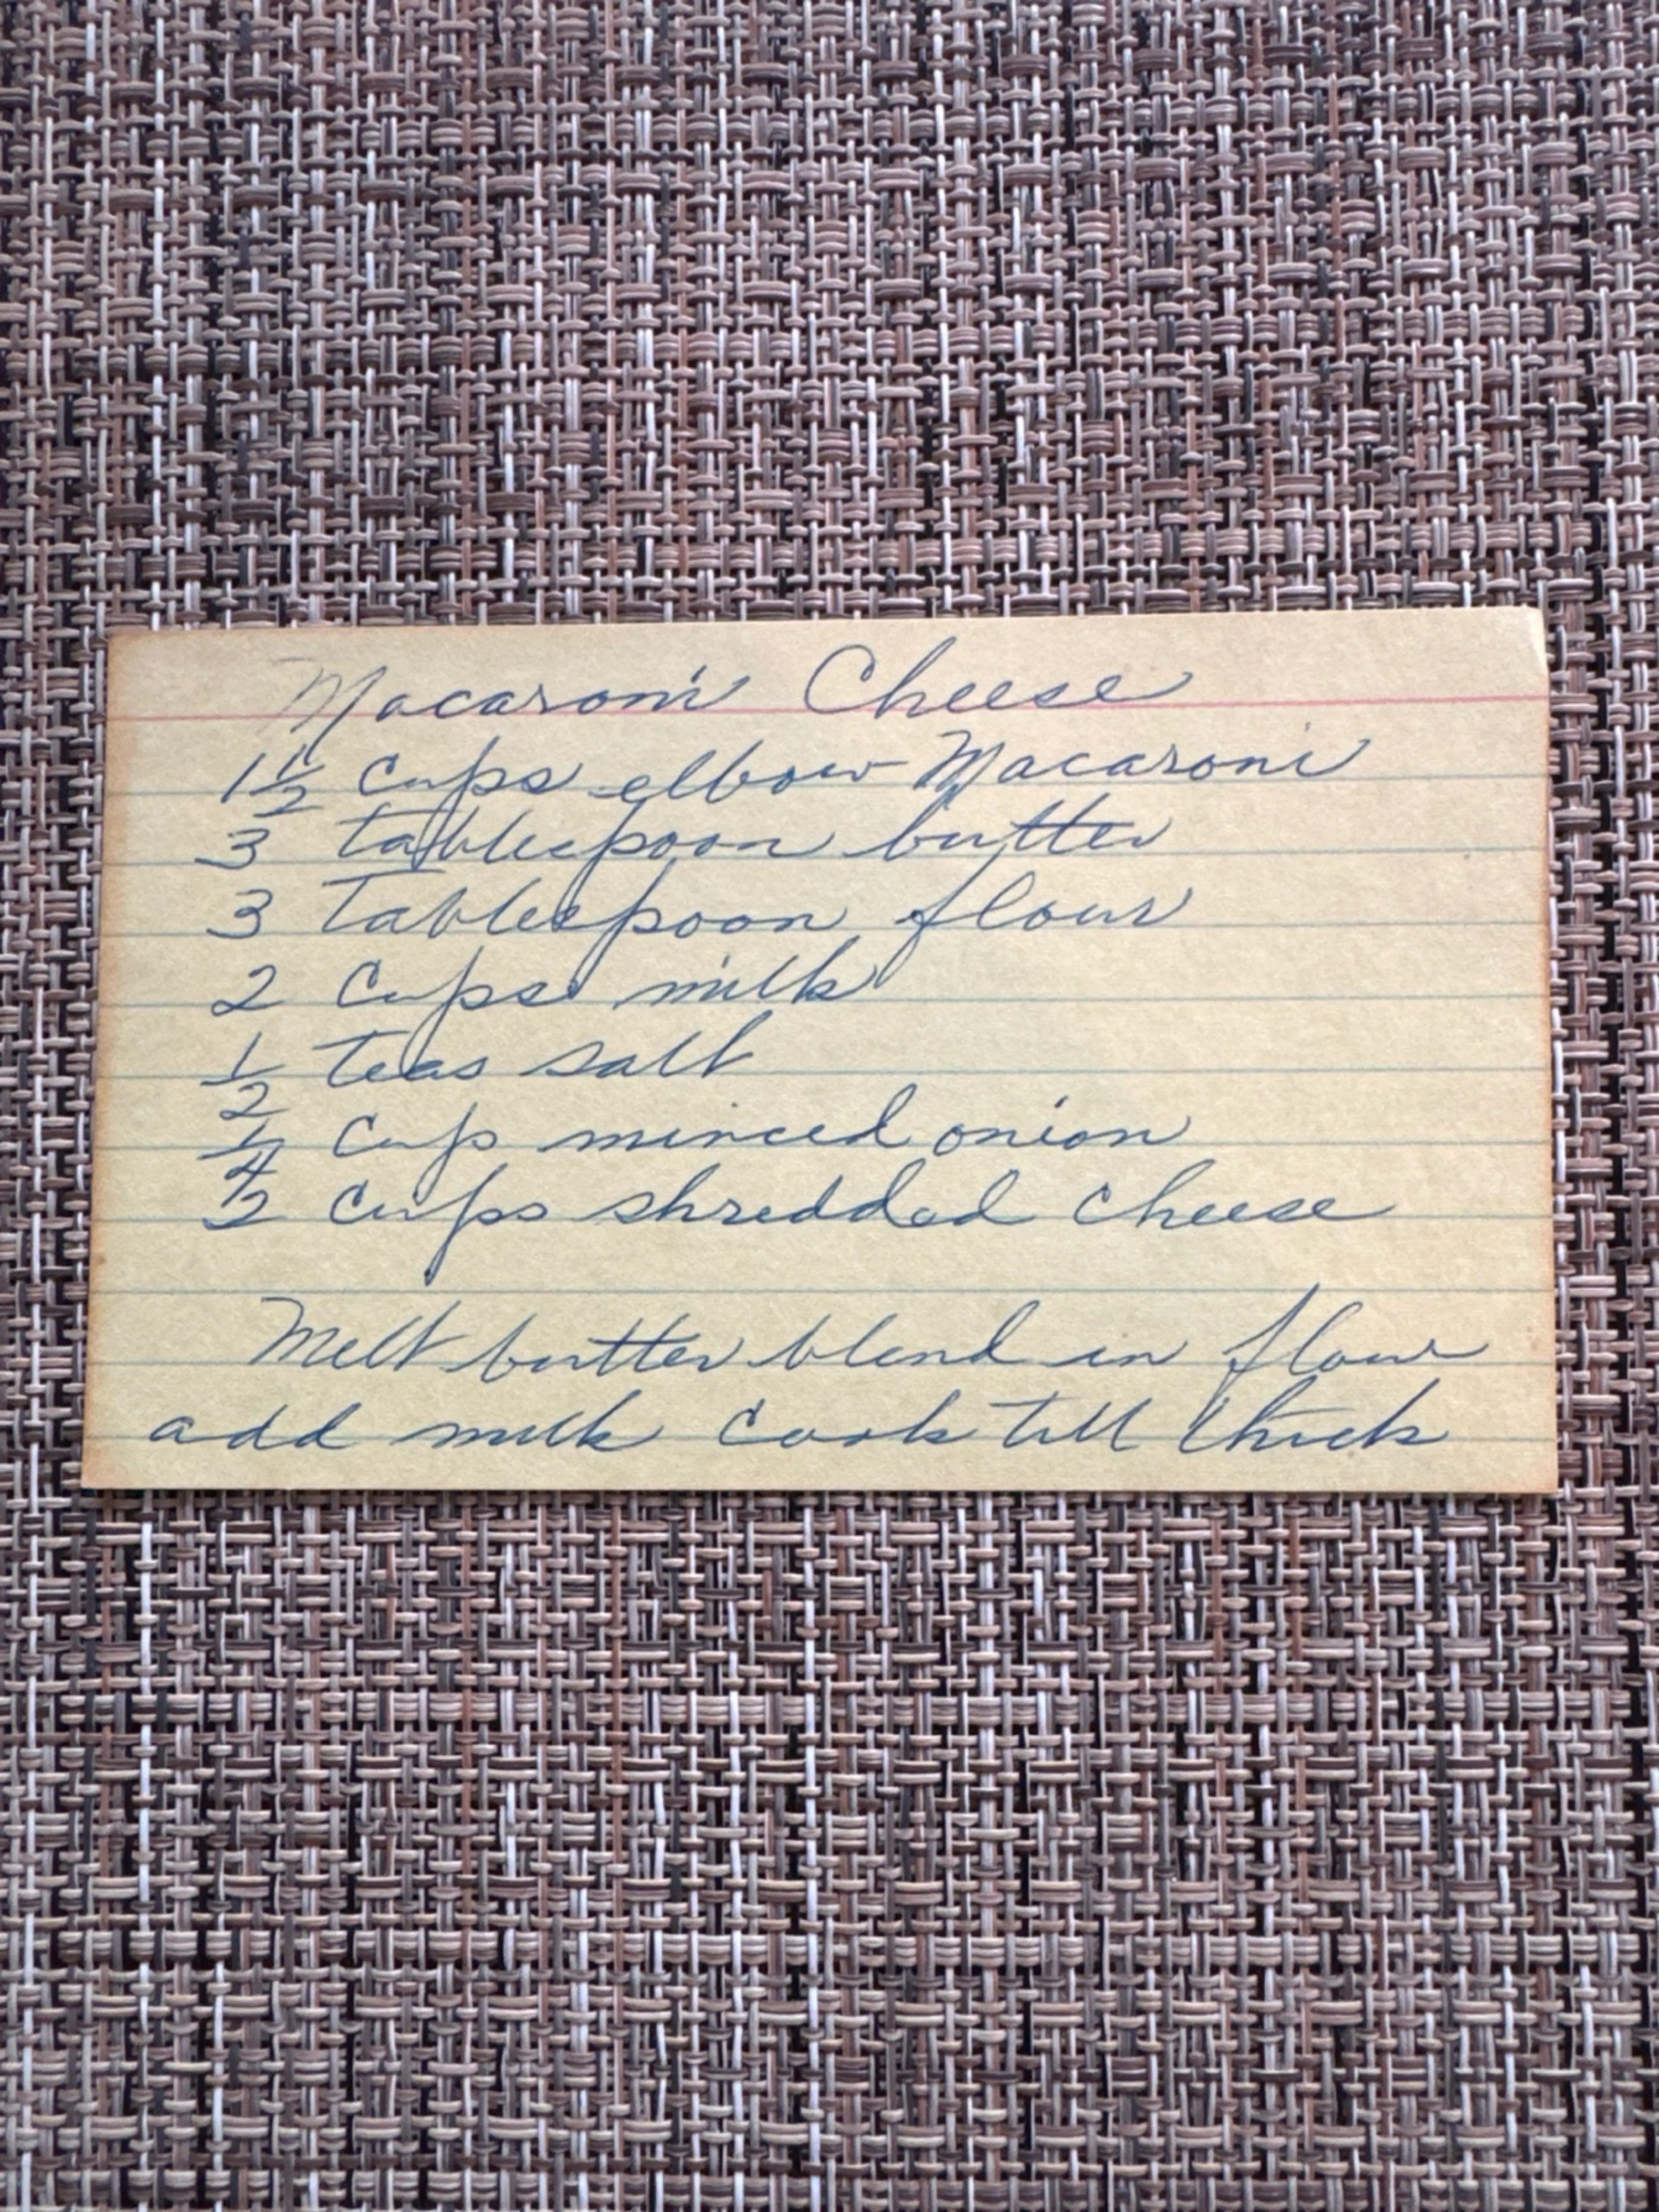 Macaroni Cheese
1 1/2 cups elbow Macaroni
3 tablespoon butter
3 Tablespoon flour
2 cups milk
1/2 teas salt
1/4 cup minced onion
2 cups shredded cheese
Melt butter blend in flour
add milk cook till thick